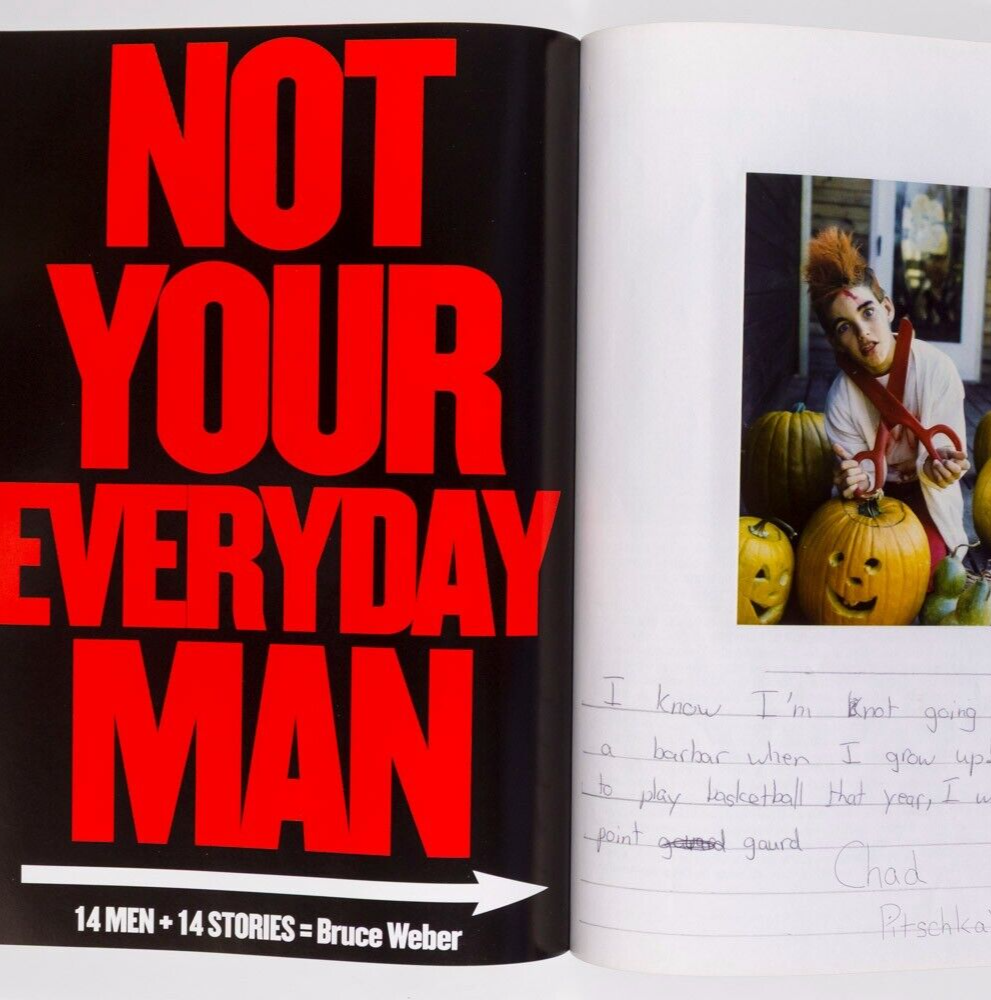 NOT
YOUR
EVERYDAY
MAN
14 MEN + 14 STORIES = Bruce Weber
I know I'm not going
a barbar when I grow up.
to play basketball that year, I w
point gaurd
Chad
Pitschka